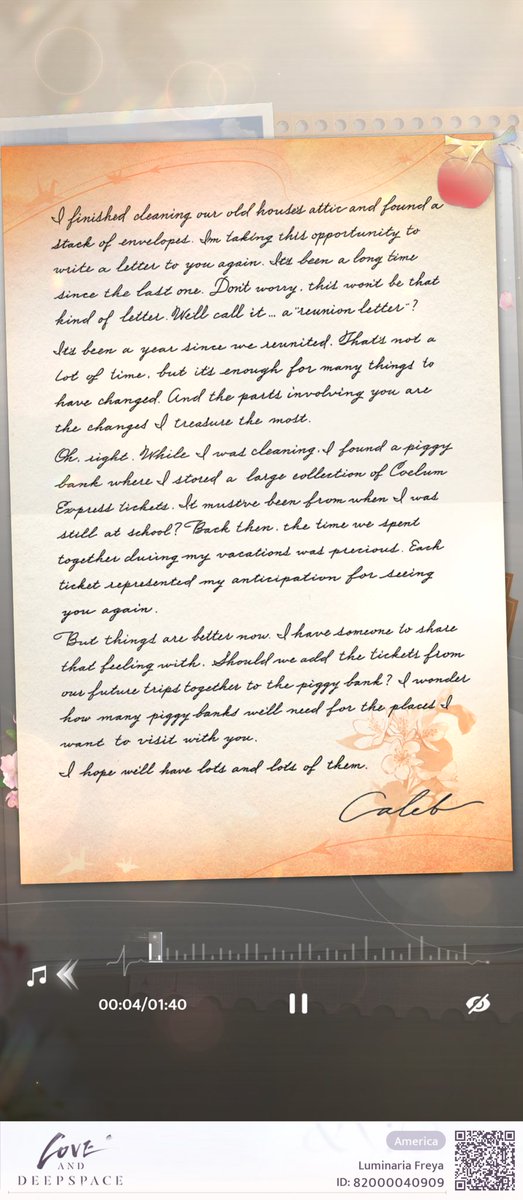 I finished cleaning our old house's attic and found a
stack of envelopes. I'm taking this opportunity to
write a letter to you again. It's been a long time
since the last one. Don't worry, this won't be that
kind of letter. We'll call it... a "reunion letter"?
It's been a year since we reunited. That's not a
lot of time, but it's enough for many things to
have changed. And the parts involving you are
the changes I treasure the most.
Oh, right. While I was cleaning, I found a piggy
bank where I stored a large collection of Coelum
Express tickets. It must've been from when I was
still at school? Back then, the time we spent
together during my vacations was precious. Each
ticket represented my anticipation for seeing
you again.
But things are better now. I have someone to share
that feeling with. Should we add the tickets from
our future trips together to the piggy bank? I wonder
how many piggy banks we'll need for the places I
want to visit with you.
I hope we'll have lots and lots of them.
Caleb
00:04/01:40
LOVE
AND
DEEPSPACE
America
Luminaria Freya
ID: 82000040909